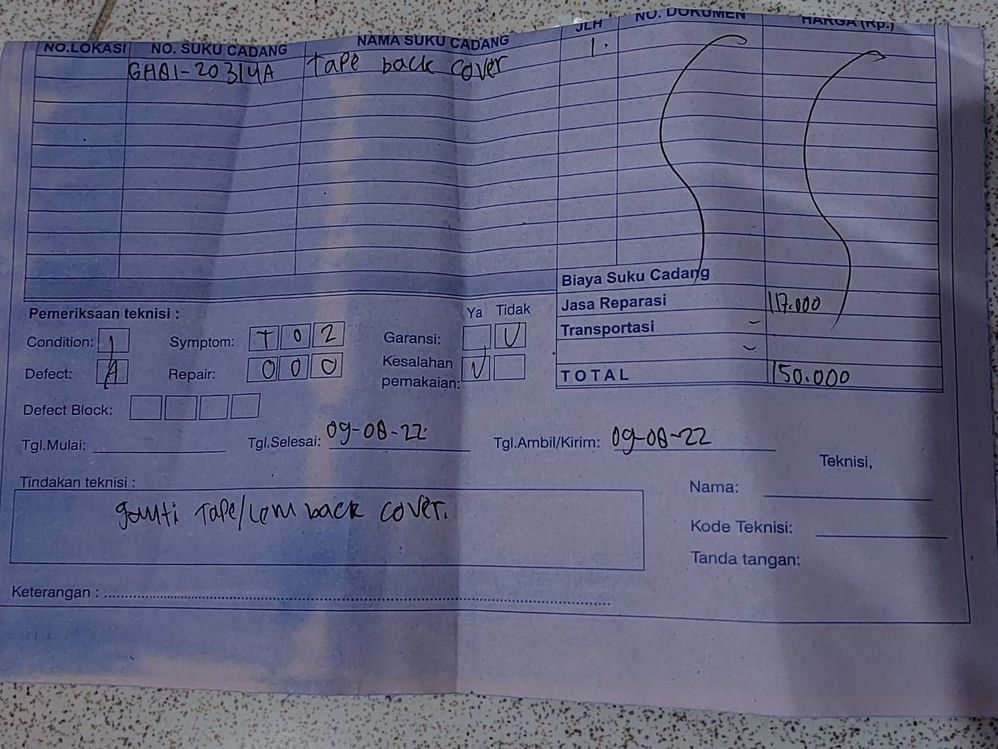 NO.LOKASI NO. SUKU CADANG NAMA SUKU CADANG JLH NO. DOKUMEN HARGA (Rp.)
GH81-20314A tape back cover 1.
Biaya Suku Cadang
Jasa Reparasi 117.000
Transportasi -
-
TOTAL 150.000
Pemeriksaan teknisi :
Ya Tidak
Condition: 1 Symptom: T 0 2 Garansi: V
Defect: A Repair: 0 0 0 Kesalahan pemakaian: V
Defect Block:
Tgl.Mulai: Tgl.Selesai: 09-08-22 Tgl.Ambil/Kirim: 09-08-22
Teknisi,
Tindakan teknisi :
ganti Tape/Lem back cover.
Nama:
Kode Teknisi:
Tanda tangan:
Keterangan :